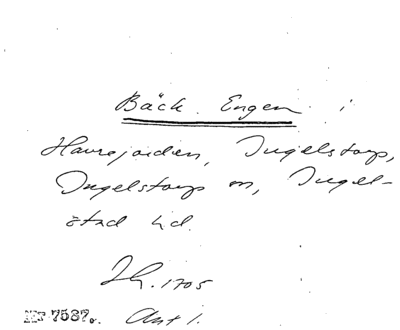 Bäck Engen i
Havrejorden, Ingelstorp,
Ingelstorps sn, Ingel-
stad hd.
Ih. 1705
Nr 7587. Akt 1.